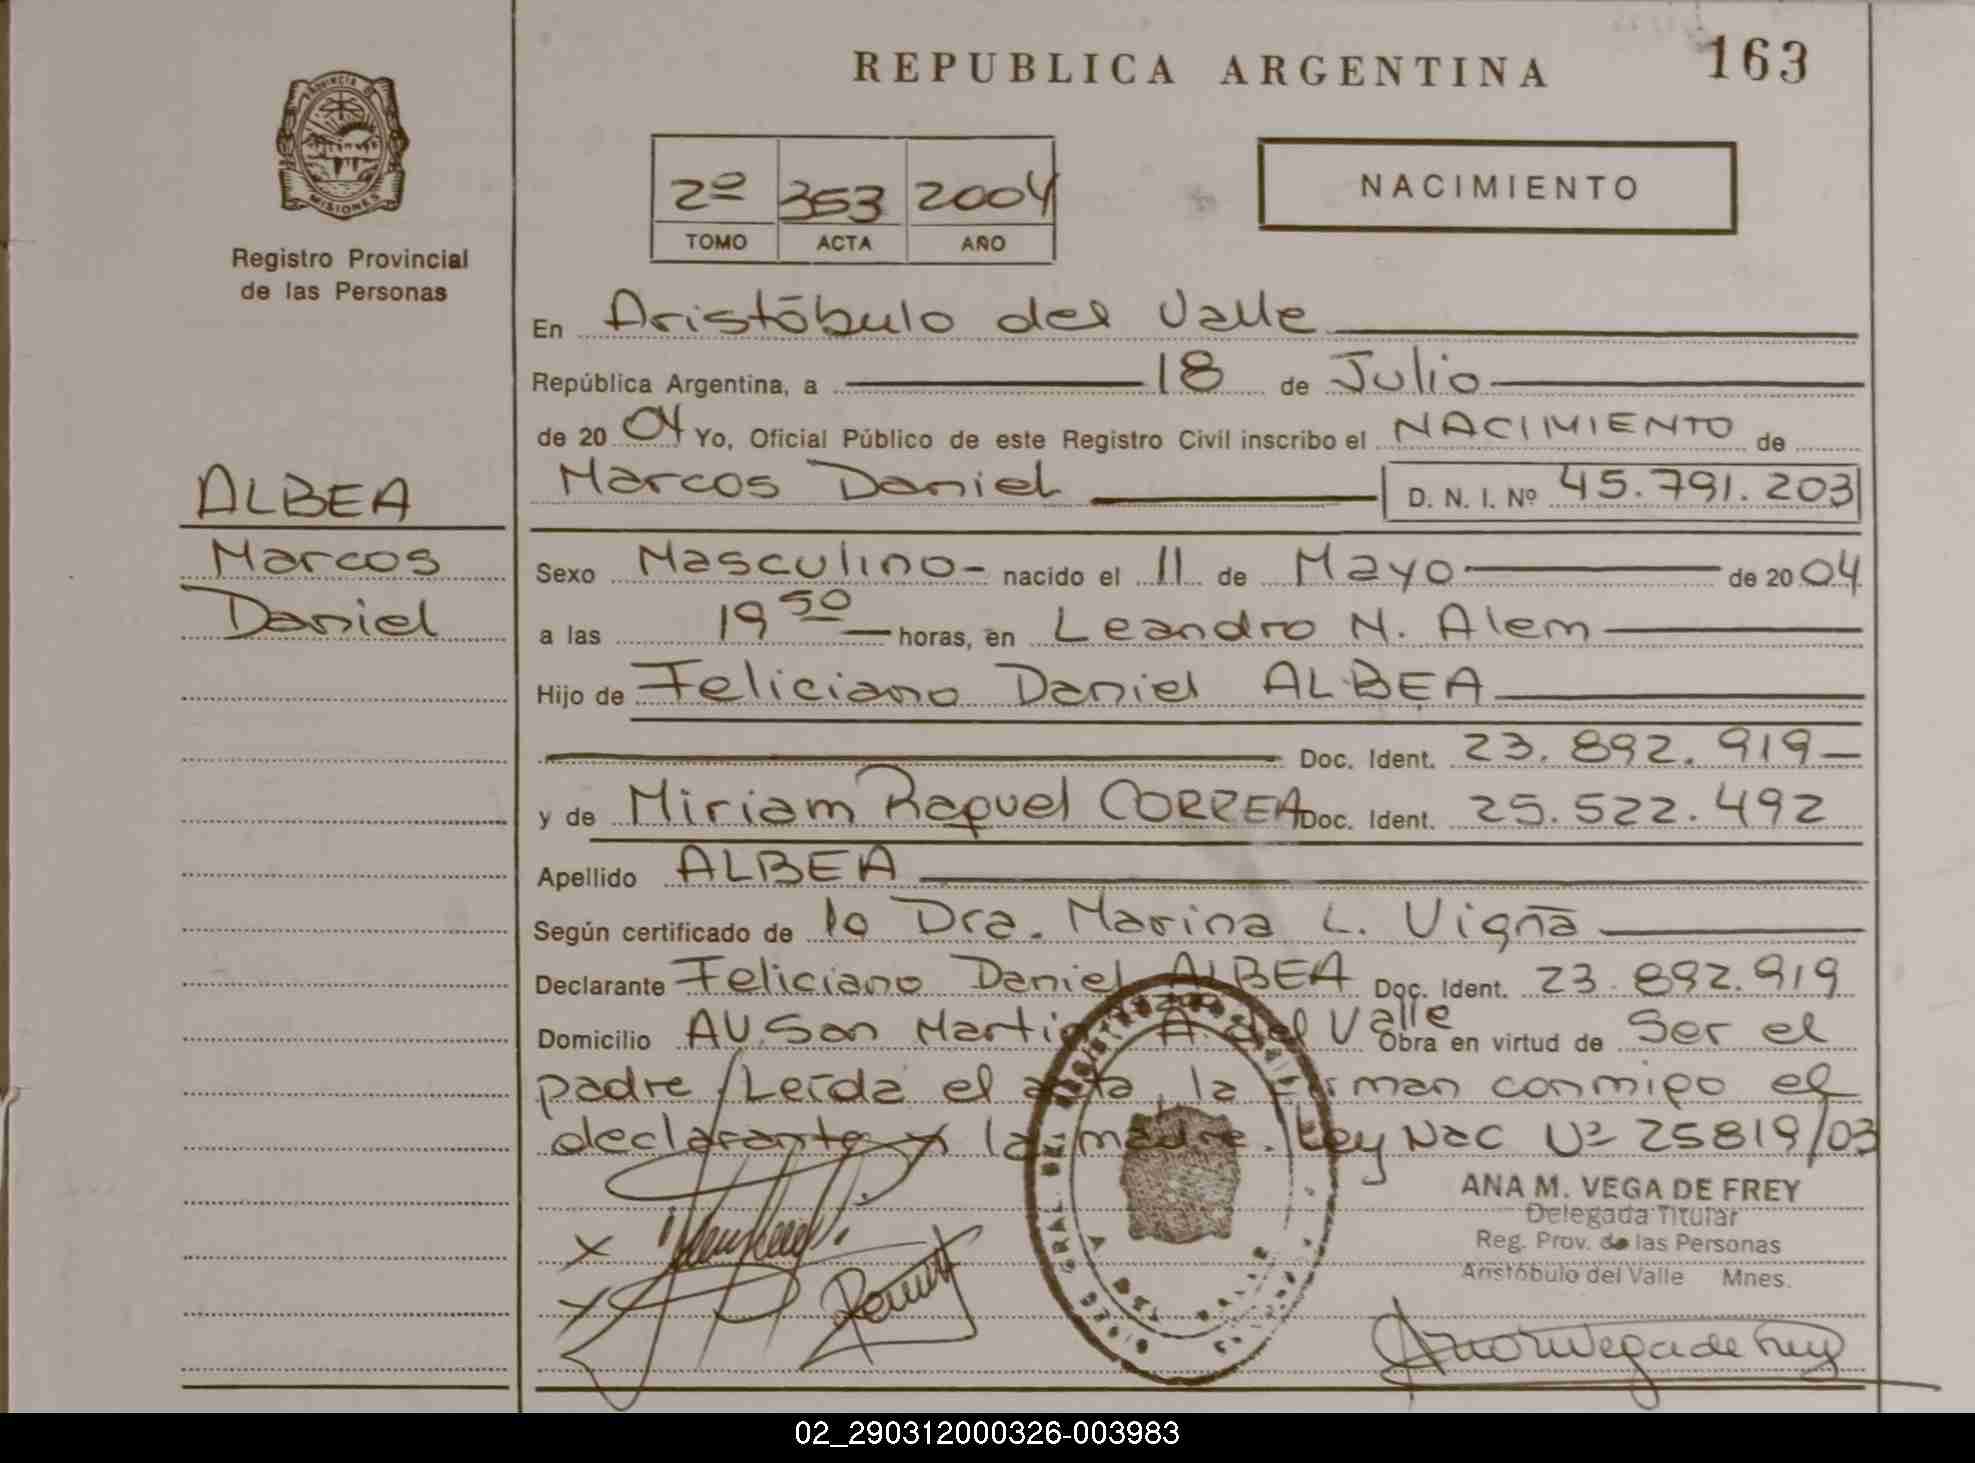 REPUBLICA ARGENTINA
163
PROVINCIA D
MISIONES
Registro Provincial
de las Personas
2º 353 2004
TOMO ACTA AÑO
NACIMIENTO
En Aristóbulo del Valle
República Argentina, a 18 de Julio
de 2004 Yo, Oficial Público de este Registro Civil inscribo el NACIMIENTO de
Marcos Daniel D. N. I. Nº 45.791.203
ALBEA
Marcos
Daniel
Sexo Masculino- nacido el 11 de Mayo de 2004
a las 19 50 horas, en Leandro N. Alem
Hijo de Feliciano Daniel ALBEA
Doc. Ident. 23.892.919-
y de Miriam Raquel CORREA Doc. Ident. 25.522.492
Apellido ALBEA
Según certificado de la Dra. Marina L. Vigña
Declarante Feliciano Daniel ALBEA Doc. Ident. 23.892.919
Domicilio AV. San Martin A. del Valle Obra en virtud de Ser el
padre. Leída el acta, la firman conmigo el
declarante y la madre. Ley Nac Nº 25819/03
ANA M. VEGA DE FREY
Delegada Titular
Reg. Prov. de las Personas
Aristóbulo del Valle Mnes.
02_290312000326-003983